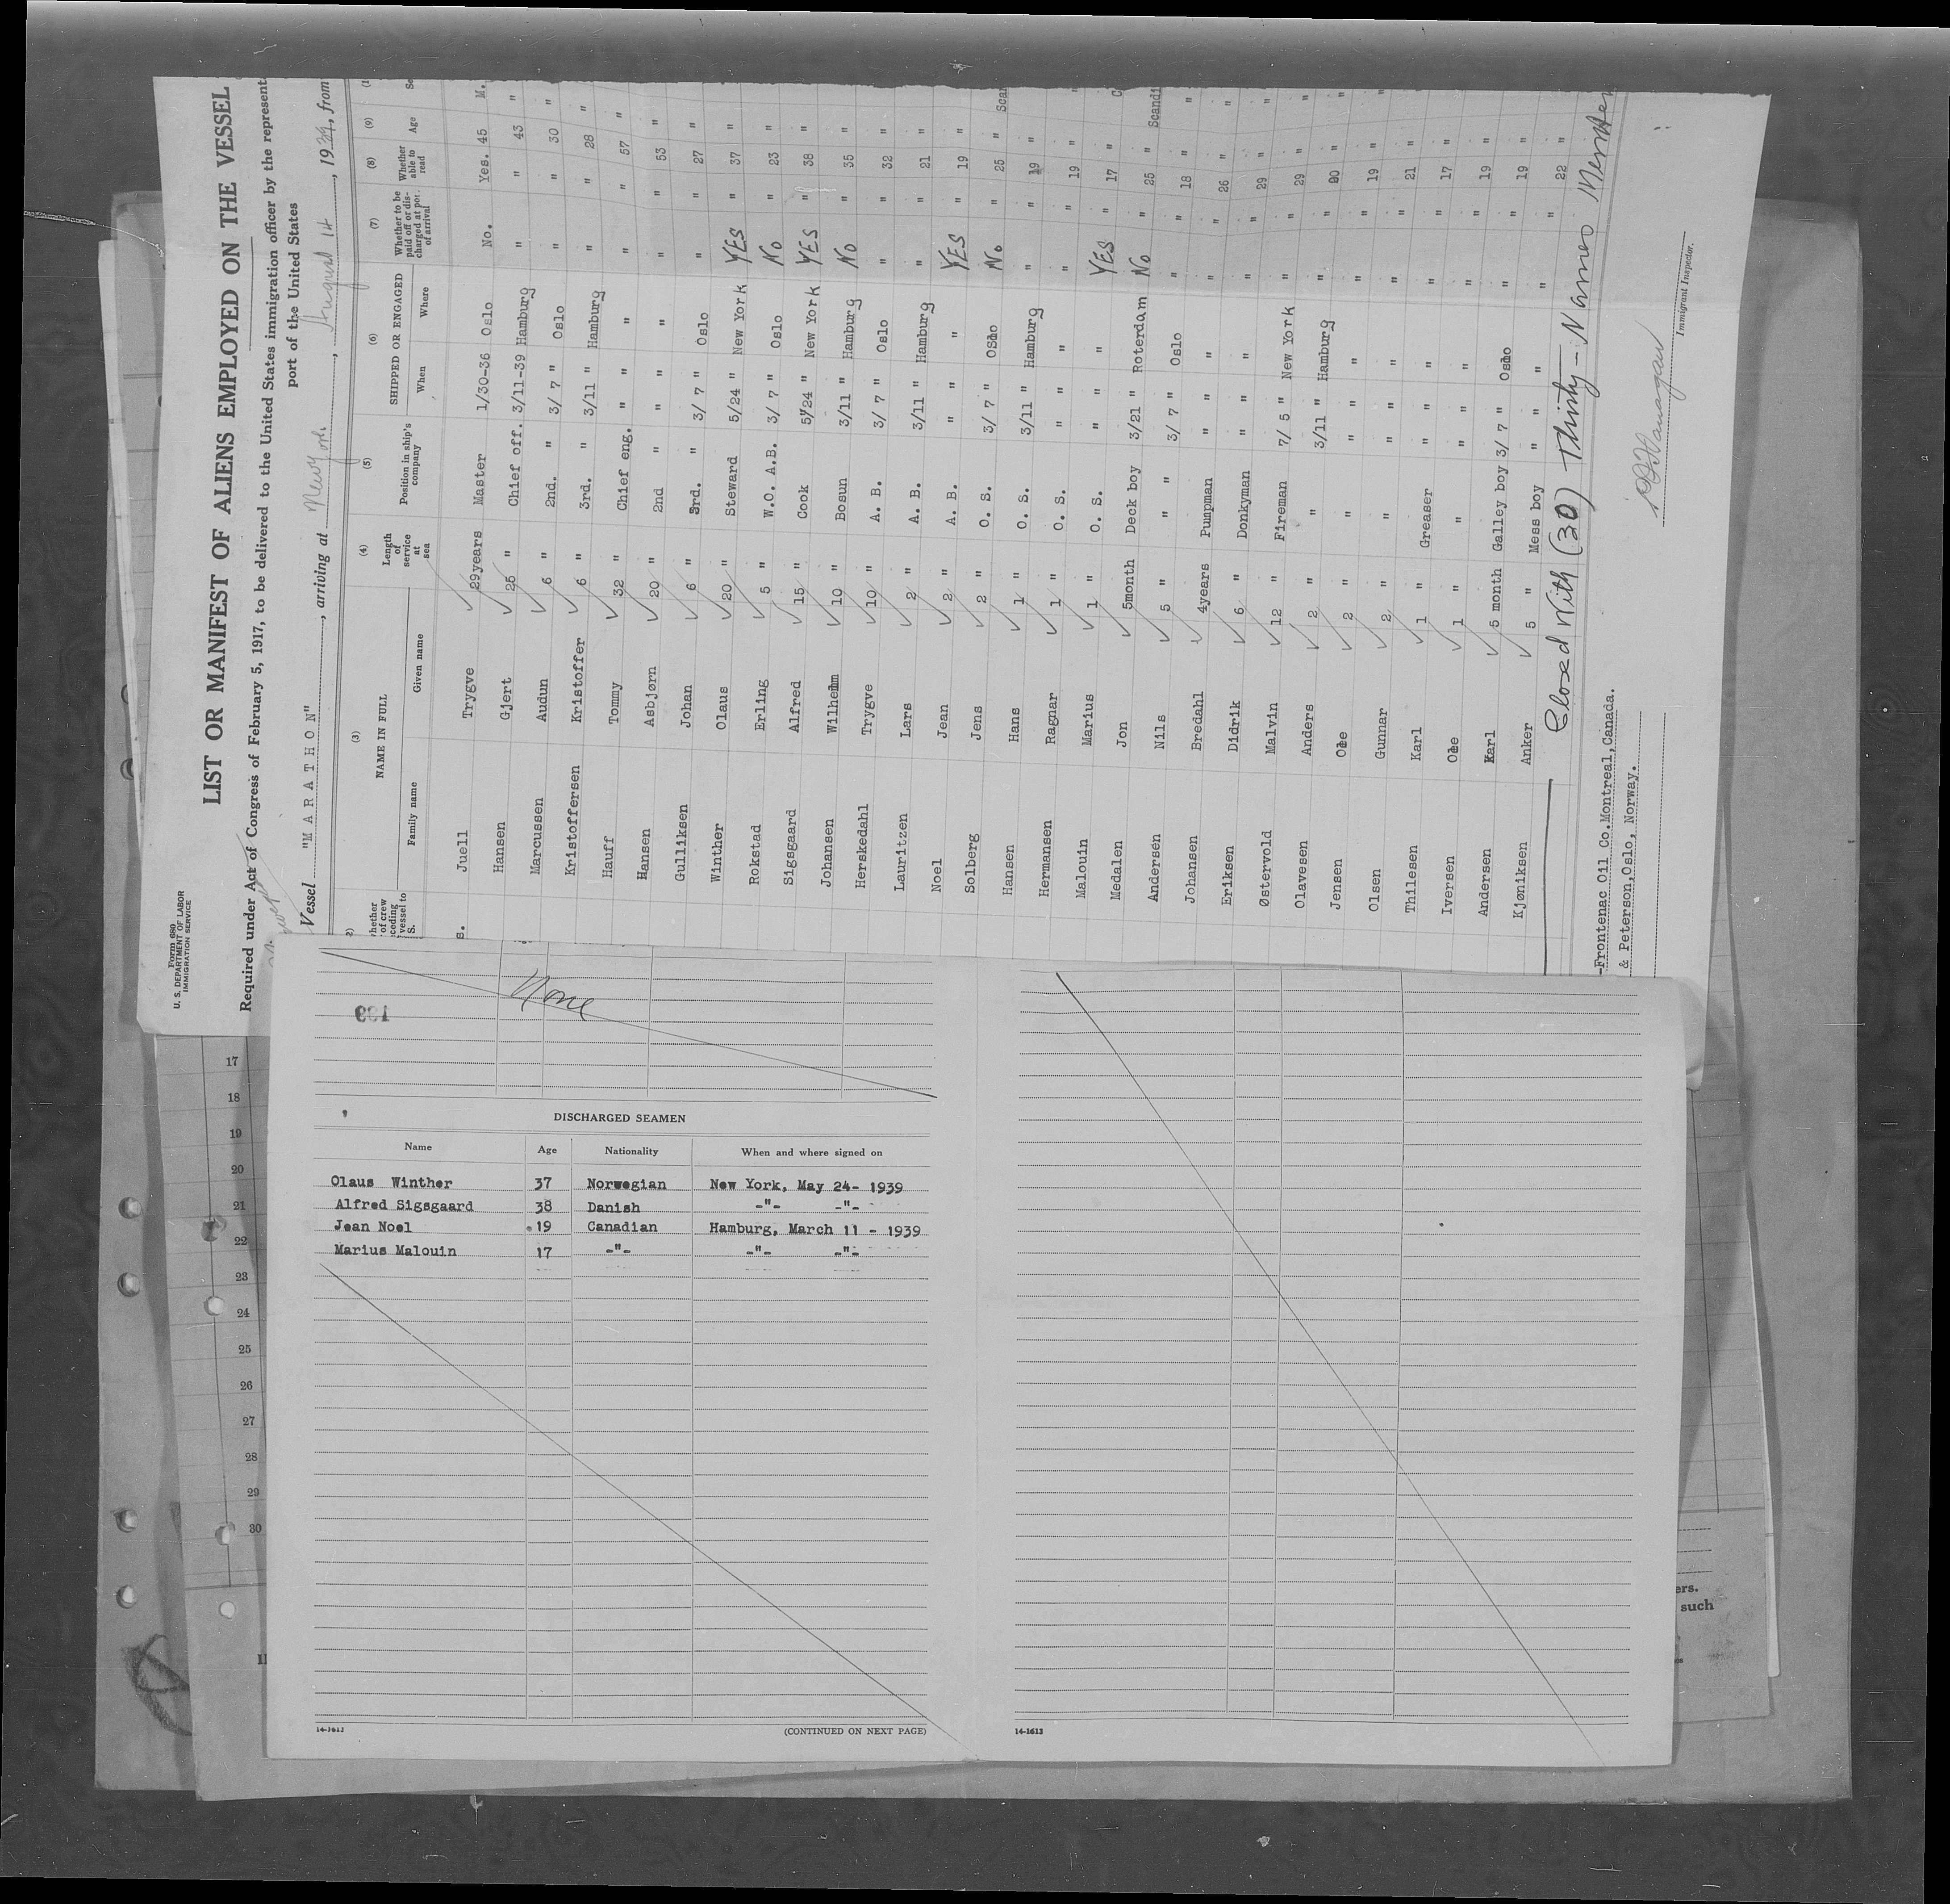 Form 680
U. S. DEPARTMENT OF LABOR
IMMIGRATION SERVICE
LIST OR MANIFEST OF ALIENS EMPLOYED ON THE VESSEL
Required under Act of Congress of February 5, 1917, to be delivered to the United States immigration officer by the represent
port of the United States
Vessel "MARATHON", arriving at New York, August 14, 1939, from
(3) (4) (5) (6) (7) (8) (9)
NAME IN FULL Length of service at sea Position in ship's company SHIPPED OR ENGAGED Whether to be paid off or discharged at port of arrival Whether able to read Age
Family name Given name When Where
Juell Trygve 29years Master 1/30-36 Oslo No. Yes. 45 M.
Hansen Gjert 25 " Chief off. 3/11-39 Hamburg " " 43 "
Marcussen Audun 6 " 2nd. " 3/ 7 " Oslo " " 30 "
Kristoffersen Kristoffer 6 " 3rd. " 3/11 " Hamburg " " 28 "
Hauff Tommy 32 " Chief eng. " " " " " 57 "
Hansen Asbjørn 20 " 2nd " " " " " " 53 "
Gulliksen Johan 6 " 3rd. " 3/ 7 " Oslo " " 27 "
Winther Olaus 20 " Steward 5/24 " New York YES " 37 "
Rokstad Erling 5 " W.O. A.B. 3/ 7 " Oslo No " 23 "
Sigsgaard Alfred 15 " Cook 5/24 " New York YES " 38 "
Johansen Wilhelm 10 " Bosun 3/11 " Hamburg No " 35 "
Herskedahl Trygve 10 " A. B. 3/ 7 " Oslo " " 32 "
Lauritzen Lars 2 " A. B. 3/11 " Hamburg " " 21 "
Noel Jean 2 " A. B. " " YES " 19 "
Solberg Jens 2 " O. S. 3/ 7 " Oslo No " 25 "
Hansen Hans 1 " O. S. 3/11 " Hamburg " " 19 "
Hermansen Ragnar 1 " O. S. " " " " 19 "
Malouin Marius 1 " O. S. " " YES " 17 "
Medalen Jon 5month Deck boy 3/21 " Roterdam No " 25 "
Andersen Nils 5 " " " 3/ 7 " Oslo " " 18 "
Johansen Bredahl 4years Pumpman " " " " 26 "
Eriksen Didrik 6 " Donkyman " " " " 29 "
Østervold Malvin 12 " Fireman 7/ 5 " New York " " 29 "
Olavesen Anders 2 " " 3/11 " Hamburg " " 20 "
Jensen Ole 2 " " " " " " 19 "
Olsen Gunnar 2 " " " " " " 21 "
Thilesen Karl 1 " Greaser " " " " 17 "
Iversen Ole 1 " " " " " " 19 "
Andersen Karl 5 month Galley boy 3/ 7 " Oslo " " 19 "
Kjøniksen Anker 5 " Mess boy " " " " 22 "
Closed With (30) Thirty — Names
-Frontenac Oil Co.Montreal,Canada.
& Peterson,Oslo, Norway.
Immigrant Inspector.
None
DISCHARGED SEAMEN
Name Age Nationality When and where signed on
Olaus Winther 37 Norwegian New York, May 24- 1939
Alfred Sigsgaard 38 Danish -"- -"-
Jean Noel 19 Canadian Hamburg, March 11 - 1939
Marius Malouin 17 -"- -"- -"-
14-1613 (CONTINUED ON NEXT PAGE)
14-1613
17
18
19
20
21
22
23
24
25
26
27
28
29
30
ers.
such